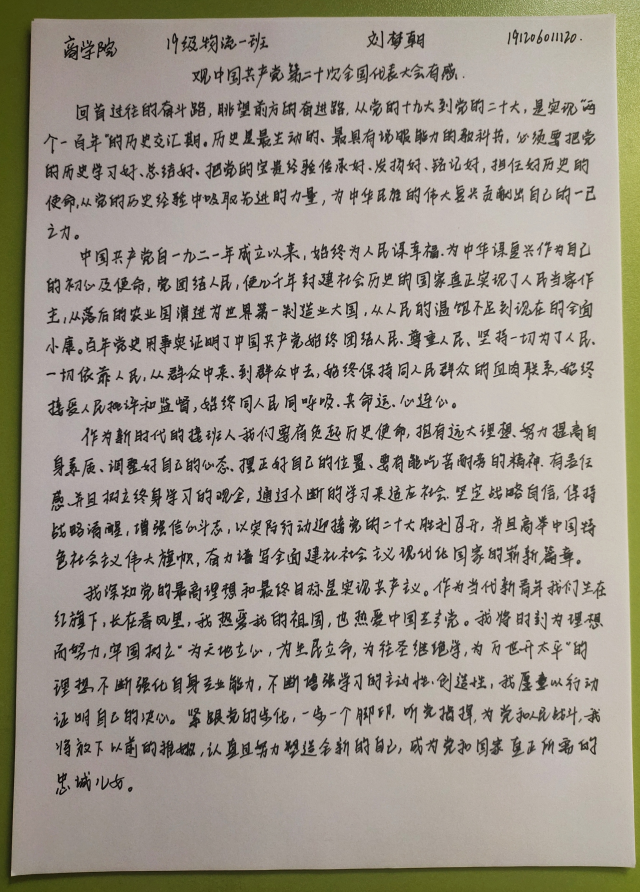 商学院 19级物流一班 刘梦朝 191206011120.
观中国共产党第二十次全国代表大会有感.
回首过往的奋斗路,眺望前方的奋进路,从党的十九大到党的二十大,是实现“两
个一百年”的历史交汇期。历史是最生动的、最具有说服能力的教科书,必须要把党
的历史学习好、总结好、把党的宝贵经验传承好、发扬好、铭记好,担任好历史的
使命,从党的历史经验中吸取前进的力量,为中华民族的伟大复兴贡献出自己的一己
之力。
中国共产党自一九二一年成立以来,始终为人民谋幸福、为中华谋复兴作为自己
的初心及使命,党团结人民,使几千年封建社会历史的国家真正实现了人民当家作
主,从落后的农业国演进为世界第一制造业大国,从人民的温饱不足到现在的全面
小康。百年党史用事实证明了中国共产党始终团结人民、尊重人民、坚持一切为了人民、
一切依靠人民,从群众中来、到群众中去,始终保持同人民群众的血肉联系,始终
接受人民批评和监督,始终同人民同呼吸、共命运、心连心。
作为新时代的接班人我们要肩负起历史使命,抱有远大理想、努力提高自
身素质、调整好自己的心态、摆正好自己的位置、要有能吃苦耐劳的精神、有责任
感并且树立终身学习的观念,通过不断的学习来适应社会、坚定战略自信,保持
战略清醒,增强信心斗志,以实际行动迎接党的二十大胜利召开,并且高举中国特
色社会主义伟大旗帜,奋力谱写全面建设社会主义现代化国家的崭新篇章。
我深知党的最高理想和最终目标是实现共产主义。作为当代新青年我们生在
红旗下,长在春风里,我热爱我的祖国,也热爱中国共产党。我将时刻为理想
而努力,牢固树立“为天地立心,为生民立命,为往圣继绝学,为万世开太平”的
理想,不断强化自身专业能力,不断增强学习的主动性、创造性,我愿意以行动
证明自己的决心。紧跟党的步伐,一步一个脚印,听党指挥,为党和人民战斗,我
将放下以前的稚嫩,认真且努力塑造全新的自己,成为党和国家真正所需的
忠诚儿女。